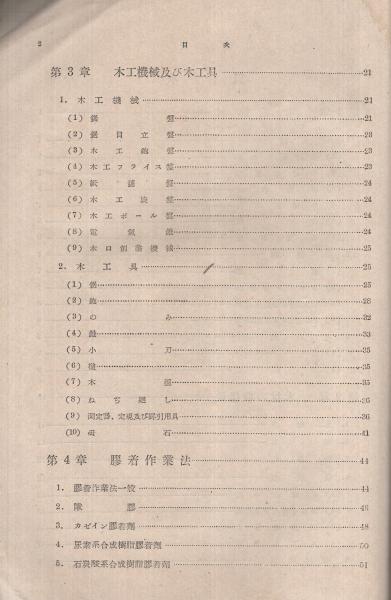 2 目次
第3章 木工機械及び木工具 21
1. 木工機械 21
(1) 鋸盤 21
(2) 鋸目立盤 23
(3) 木工鉋盤 23
(4) 木工フライス盤 23
(5) 盤 24
(6) 木工旋盤 24
(7) 木工ボール盤 24
(8) 電気 24
(9) 木口削機械 25
2. 木工具 25
(1) 鋸 25
(2) 鉋 28
(3) のみ 32
(4) 33
(5) 小刀 35
(6) 35
(7) 木 35
(8) ねぢ廻し 36
(9) 測定器、定規及び罫引用具 36
(10) 砥石 41
第4章 膠着作業法 44
1. 膠着作業法一般 44
2. 膠 46
3. カゼイン膠着剤 48
4. 尿素系合成樹脂膠着剤 50
5. 石炭酸系合成樹脂膠着剤 51